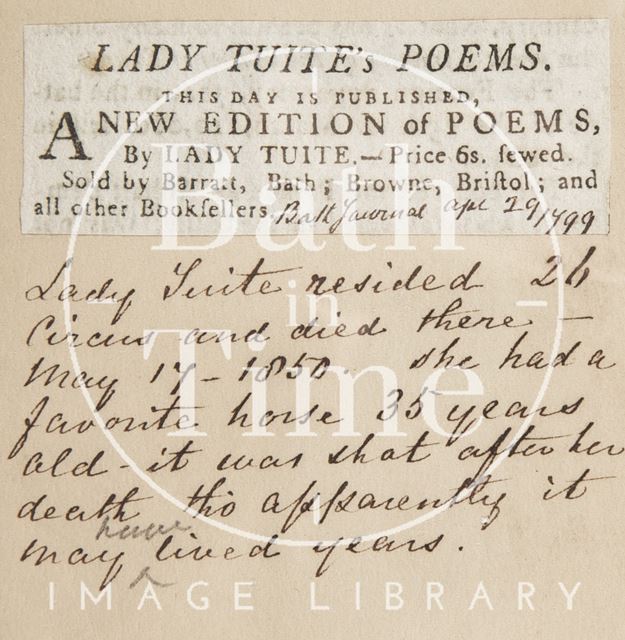 LADY TUITE's POEMS.
THIS DAY IS PUBLISHED,
A NEW EDITION of POEMS,
By LADY TUITE.—Price 6s. ſewed.
Sold by Barratt, Bath; Browne, Briſtol; and
all other Bookſellers. Bath Journal apr 29/1799
Lady Tuite resided 26
Circus and died there —
May 17 – 1850. she had a
favorite horse 35 years
old – it was shot after her
death tho apparently it
may have lived years.
Bath
in
Time
IMAGE LIBRARY